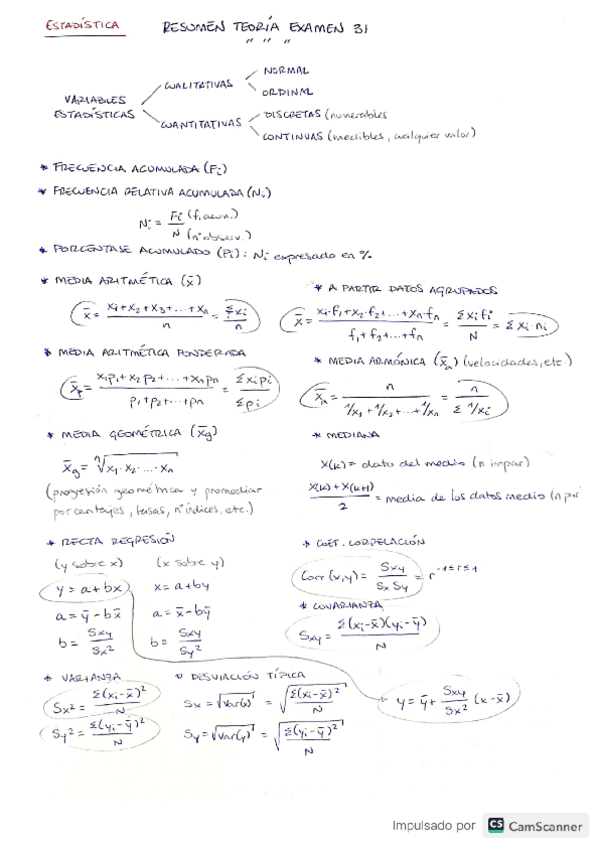 ESTADÍSTICA
RESUMEN TEORÍA EXAMEN 31
" " "
VARIABLES ESTADÍSTICAS
CUALITATIVAS
NORMAL
ORDINAL
CUANTITATIVAS
DISCRETAS (numerables
CONTINUAS (medibles, cualquier valor)
* FRECUENCIA ACUMULADA (Fi)
* FRECUENCIA RELATIVA ACUMULADA (Ni)
Ni = Fi (f. acum.) / N (nº observ.)
* PORCENTAJE ACUMULADO (Pi): Ni expresado en %
* MEDIA ARITMÉTICA (x̄)
x̄ = x1+x2+x3+...+xn / n = Σxi / n
* A PARTIR DATOS AGRUPADOS
x̄ = xi·f1+x2·f2+...+xn·fn / f1+f2+...+fn = Σxi fi / N = Σ xi ni
* MEDIA ARITMÉTICA PONDERADA
x̄p = x1p1+x2p2+...+xnpn / p1+p2+...+pn = Σxipi / Σpi
* MEDIA ARMÓNICA (x̄a) (velocidades, etc.)
x̄a = n / 1/x1+1/x2+...+1/xn = n / Σ 1/xi
* MEDIA GEOMÉTRICA (x̄g)
x̄g = ⁿ√x1·x2·...·xn
(progresión geométrica y promediar
porcentajes, tasas, nº índices, etc.)
* MEDIANA
X(k) = dato del medio (n impar)
X(k)+X(k+1) / 2 = media de los datos medio (n par
* RECTA REGRESIÓN
(y sobre x) (x sobre y)
y = a+bx x = a+by
a = ȳ-bx̄ a = x̄-bȳ
b = Sxy / Sx² b = Sxy / Sy²
* COEF. CORRELACIÓN
Corr(x,y) = Sxy / Sx Sy = r -1≤r≤1
* COVARIANZA
Sxy = Σ(xi-x̄)(yi-ȳ) / N
* VARIANZA
Sx² = Σ(xi-x̄)² / N
Sy² = Σ(yi-ȳ)² / N
* DESVIACIÓN TÍPICA
Sx = √var(x) = √Σ(xi-x̄)² / N
Sy = √var(y) = √Σ(yi-ȳ)² / N
y = ȳ + Sxy / Sx² (x-x̄)
Impulsado por CS CamScanner